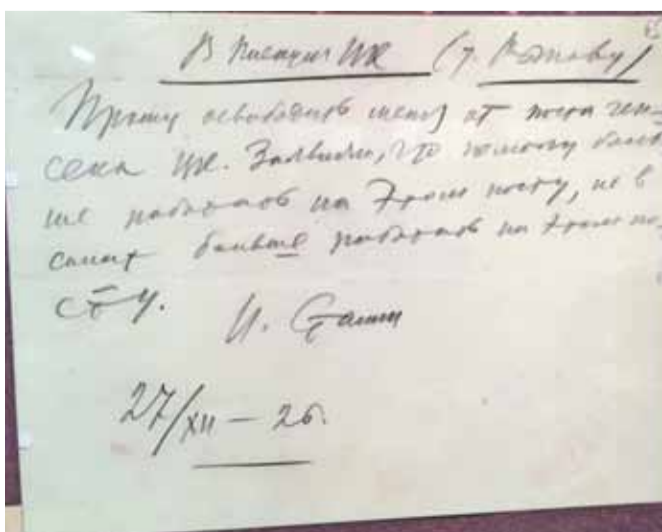 В Пленум ЦК (т. Рыкову)
Прошу освободить меня от поста ген-
сека ЦК. Заявляю, что не могу боль-
ше работать на этом посту, не в
силах больше работать на этом по-
сту.
И. Сталин
27/XII – 26.